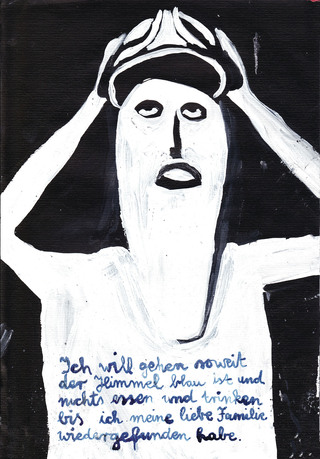 Ich will gehen soweit
der Himmel blau ist und
nichts essen und trinken
bis ich meine liebe Familie
wiedergefunden habe.